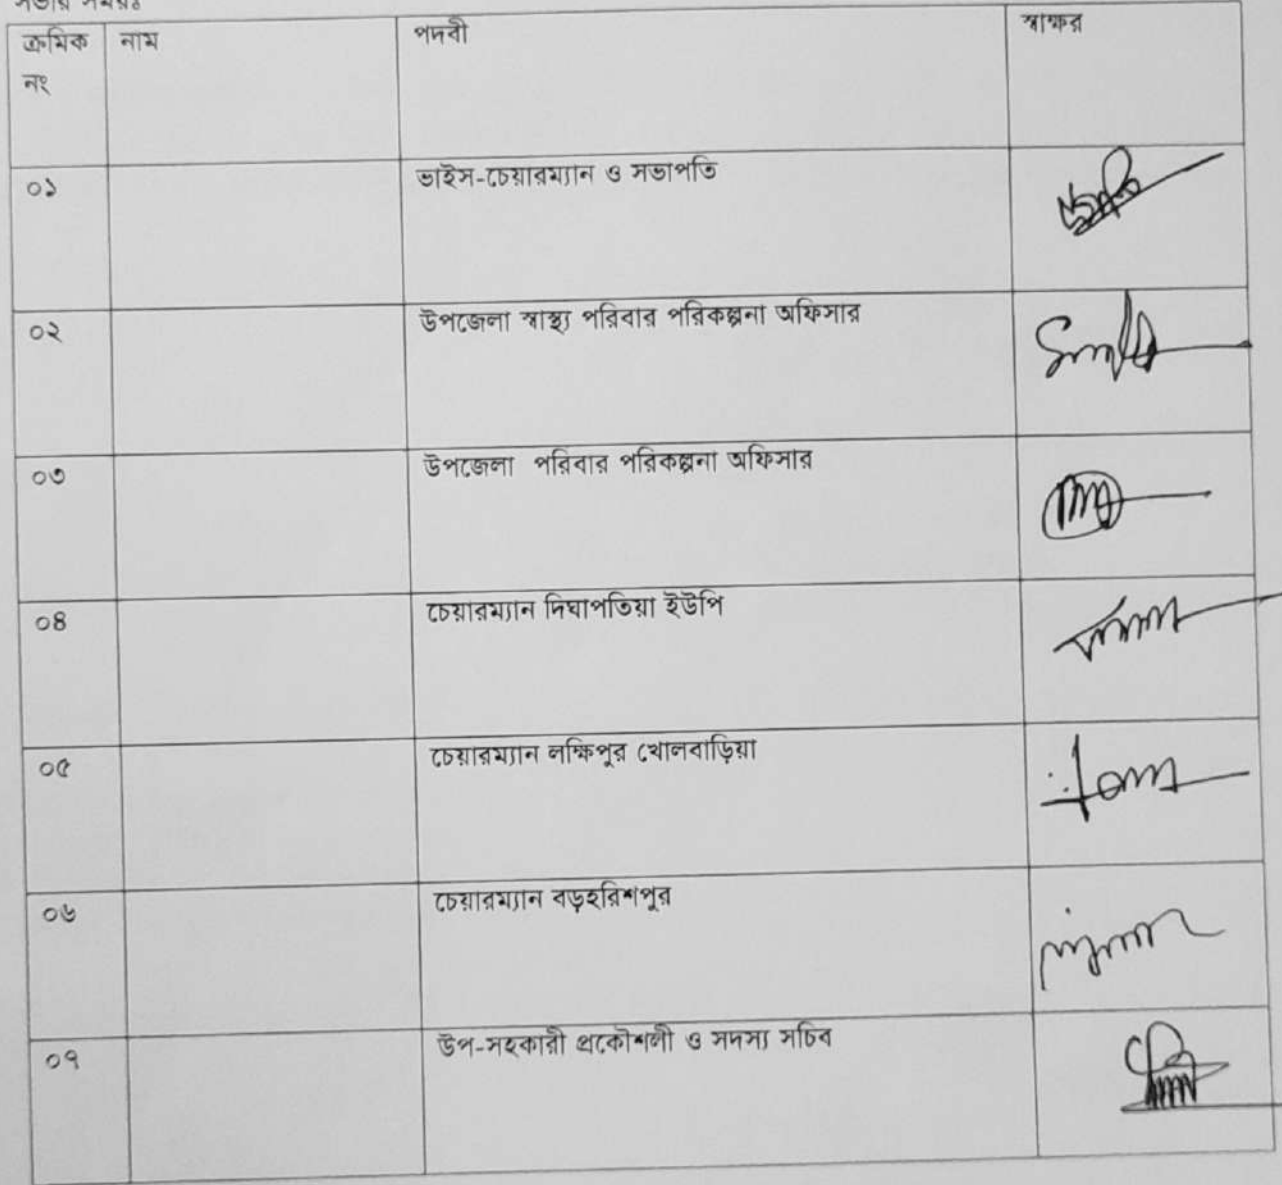 সভার সময়ঃ
ক্রমিক নং নাম পদবী স্বাক্ষর
০১ ভাইস-চেয়ারম্যান ও সভাপতি
০২ উপজেলা স্বাস্থ্য পরিবার পরিকল্পনা অফিসার
০৩ উপজেলা পরিবার পরিকল্পনা অফিসার
০৪ চেয়ারম্যান দিঘাপতিয়া ইউপি
০৫ চেয়ারম্যান লক্ষিপুর খোলবাড়িয়া
০৬ চেয়ারম্যান বড়হরিশপুর
০৭ উপ-সহকারী প্রকৌশলী ও সদস্য সচিব